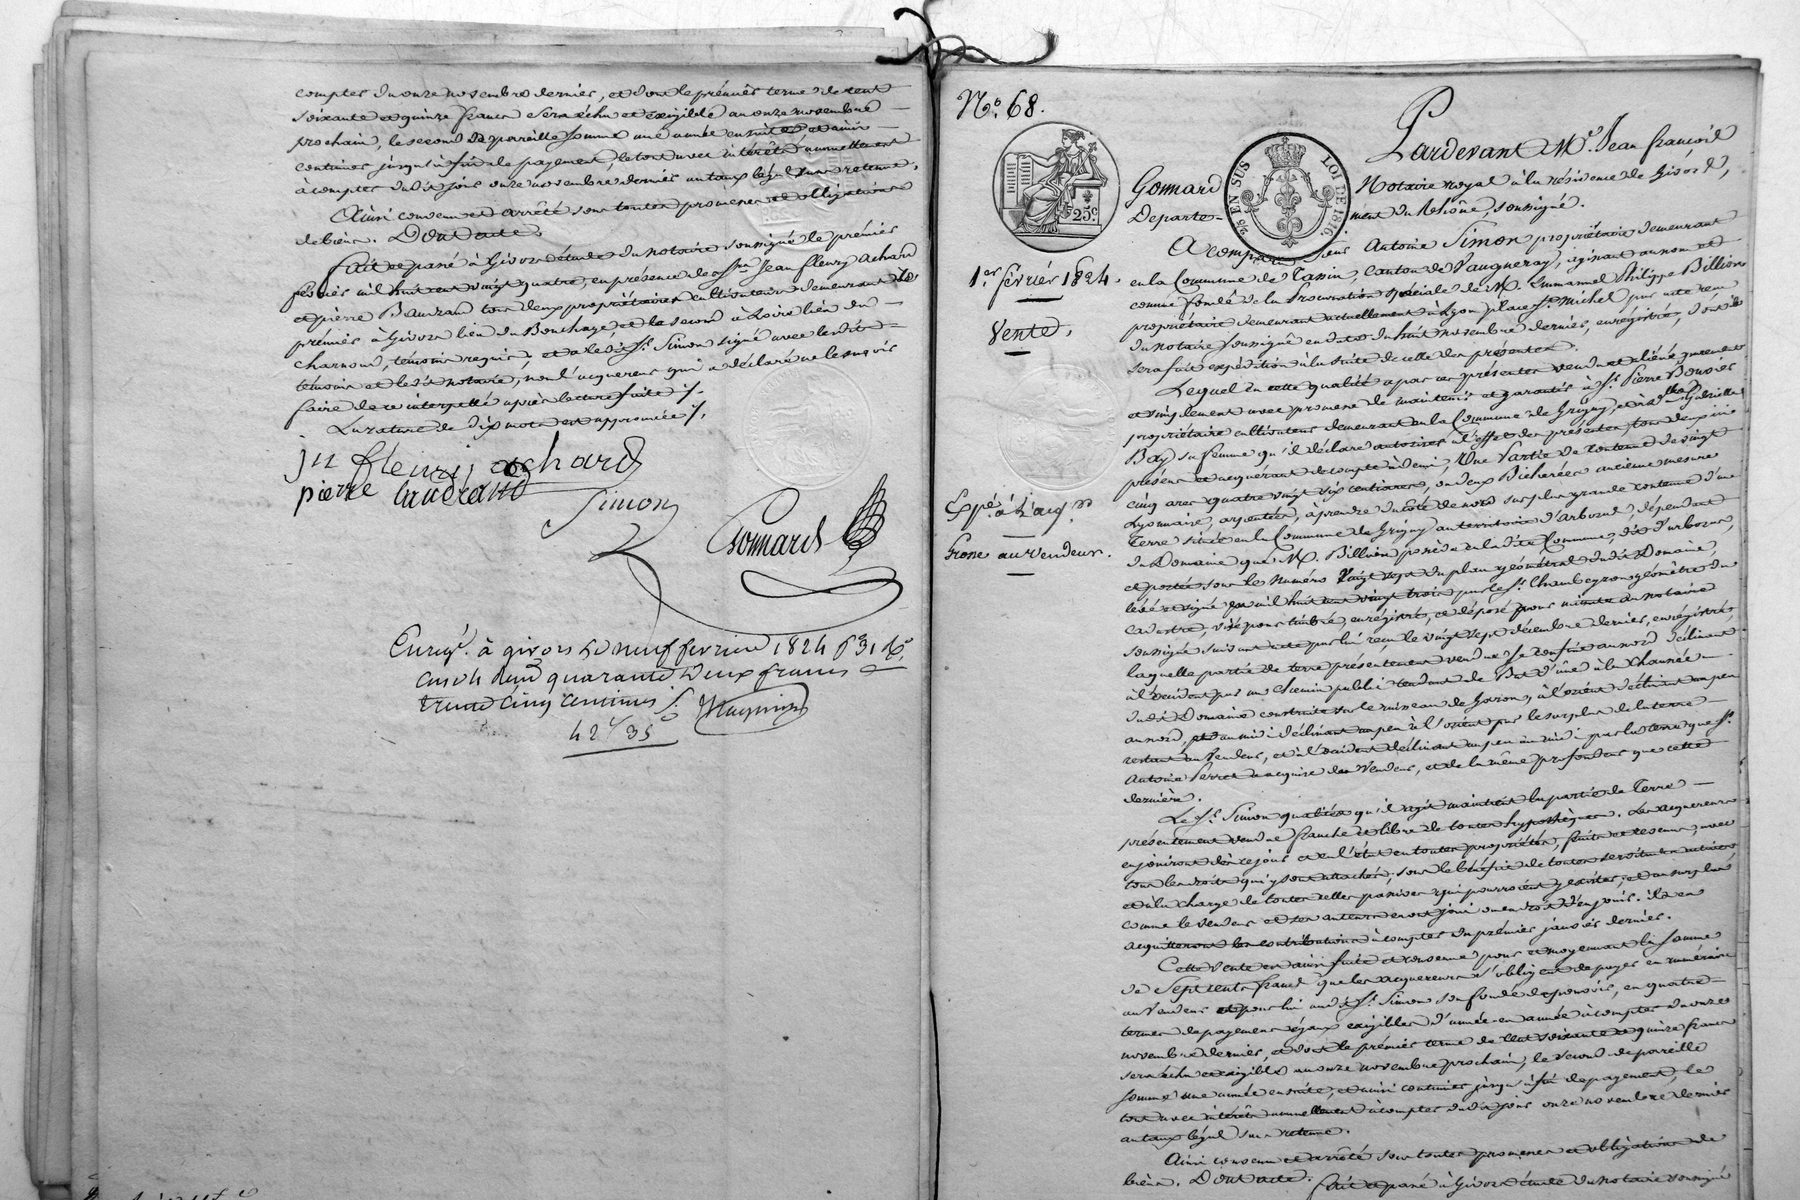 comptes du onze novembre dernier, et dont le prémier terme de cent
soixante et quinze francs sera échu et éxigible au onze novembre
prochain, le second de pareille somme une année ensuite et ainsi
continuer jusqu'à fin de payement, le tout avec intérêts annuellement
à compter dudit jour onze novembre dernier au taux légal sans retenue.
Ainsi convenu et arrêté sous toutes promesses et obligations
de biens. Dont acte.
Fait et passé à Givors étude du notaire soussigné le prémier
février mil huit cent vingt quatre, en présence de Jean fleury achard
et pierre tous deux propriétaires cultivateurs demeurant le
prémier à Givors lieu de Bonchage, et le second à Loire lieu du
charnoud, témoins requis, et a ledit Sr. Simon signé avec lesdits
témoins et ledit notaire, non l'acquereur qui a déclaré ne le savoir
faire de ce interpellé après lecture faite ./.
La rature de dix mots est approuvée ./.
jn fleury achard
pierre
Simon
Gonnard
Enregé. à givors le neuf fevrier 1824 fo 31 Ro
quarante deux francs
trente cinq centimes
42f 35
No. 68.
Pardevant Me. Jean françois
Gonnard Notaire royal à la résidence de Givors,
Departement du Rhône, soussigné.
25c.
25 EN SUS LOI DE 1816.
1er. février 1824.
Vente.
A comparu Sieur Antoine Simon propriétaire demeurant
en la Commune de Tassin, Canton de Vaugneray, agissant au nom et
comme fondé de la Procuration spéciale de M. Emmanuel Philippe Billion
propriétaire demeurant actuellement à Lyon place St. Michel par acte reçu
du notaire soussigné en date du huit novembre dernier, enregistré, dont il
sera fait expédition à la suite de celle des présentes.
Lequel en cette qualité a par ces présentes vendu et aliéné purement
et simplement avec promesse de maintenir et garantir à Sr. Pierre Bouvier
propriétaire cultivateur demeurant en la Commune de Grigny, et à Gabrielle
Bay sa femme qu'il déclare autoriser à l'effet des présentes, tous deux ici
présens et acquérant de compte à demi, Une Partie de contenue de vingt
cinq ares quatre vingt six centiares, ou deux Bicherées ancienne mesure
Lyonnaise, arpentée, à prendre du côté de nord sur plus grande contenue d'une
Expé. à l'acqr.
Grosse au vendeur.
Terre située en la Commune de Grigny au territoire d'arboras, dépendant
du Domaine que M. Billion possède en ladite Commune, dit d'arboras,
et portée sous le Numéro Vingt sept du plan géométral dudit Domaine,
levé et signé en mil huit cent vingt trois par le Sr. Chambeyron géomètre du
cadastre, visé pour timbre, enregistré, et déposé pour minute au notaire
soussigné suivant acte par lui reçu le vingt sept décembre dernier, enregistré,
laquelle partie de terre présentement vendue se confine au nord déclinant
à l'occident par un chemin public tendant de Bas d'ûne à la chaussée
dudit Domaine construite sur le ruisseau de Garon, à l'orient déclinant un peu
au nord, et au midi déclinant un peu à l'orient par le surplus de la terre
restant au Vendeur, et à l'occident déclinant un peu au midi par la terre que Sr.
Antoine Perret a acquise du Vendeur, et de la même profondeur que cette
dernière.
Le Sr. Simon qualité qu'il agit maintient la partie de Terre
présentement vendue franche et libre de toutes hypothèques. Les acquereurs
en jouiront dès ce jour et en l'état en toutes propriétés, fruits et revenus, avec
tous les droits qui y sont attachés, sous le bénéfice de toutes servitudes actives
et à la charge de toutes celles passives qui pourroient y exister, et au surplus
comme le Vendeur et ses auteurs en ont joui ou en droit d'en jouir. ils en
acquitteront les contributions à compter du prémier janvier dernier.
Cette vente est ainsi faite et consenue pour et moyennant la somme
de Sept cents francs que les acquereurs s'obligent de payer en numéraire
au Vendeur et pour lui audit Sr. Simon son fondé de pouvoir, en quatre
termes de payemens égaux exigibles d'année en année à compter du onze
novembre dernier, et dont le prémier terme de cent soixante et quinze francs
sera échu et exigible au onze novembre prochain, le second de pareille
somme une année ensuite, et ainsi continuer jusqu'à fin de payement, le
tout avec intérêts annuellement à compter dudit jour onze novembre dernier
au taux légal sans retenue.
Ainsi convenu et arrêté sous toutes promesses et obligations de
biens. Dont acte. Fait et passé à Givors étude du notaire soussigné